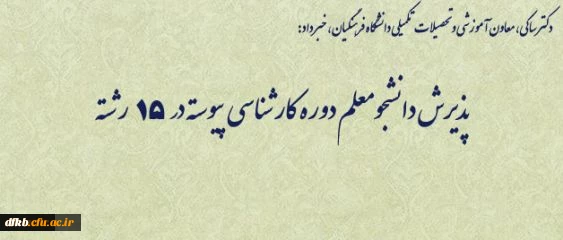 دکتر ساکی، معاون آموزشی و تحصیلات تکمیلی دانشگاه فرهنگیان، خبر داد:
پذیرش دانشجو معلم دوره کارشناسی پیوسته در ۱۵ رشته
dfkb.cfu.ac.ir